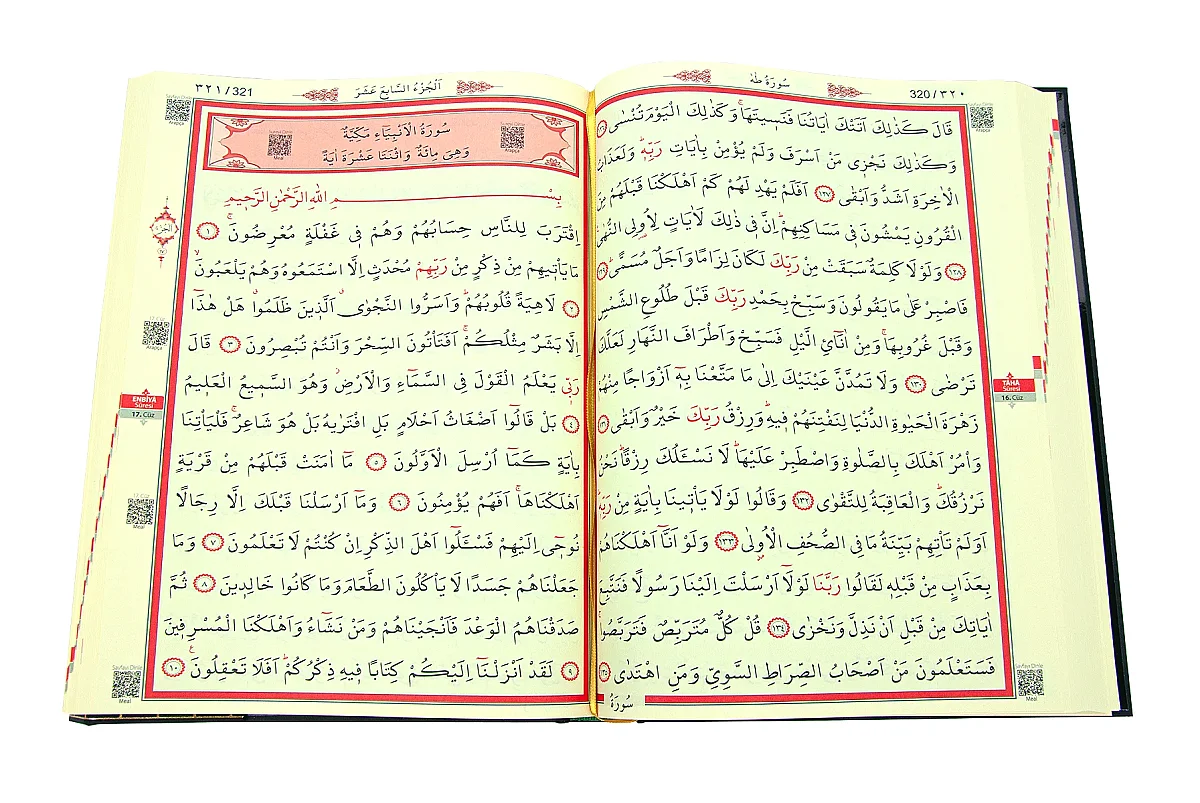 320 / ٣٢٠
سُورَةُ طٰهٰ
قَالَ كَذٰلِكَ اَتَتْكَ اٰيَاتُنَا فَنَس۪يتَهَاۚ وَكَذٰلِكَ الْيَوْمَ تُنْسٰى ﴿١٢٦﴾
وَكَذٰلِكَ نَجْز۪ي مَنْ اَسْرَفَ وَلَمْ يُؤْمِنْ بِاٰيَاتِ رَبِّه۪ۜ وَلَعَذَابُ
الْاٰخِرَةِ اَشَدُّ وَاَبْقٰى ﴿١٢٧﴾ اَفَلَمْ يَهْدِ لَهُمْ كَمْ اَهْلَكْنَا قَبْلَهُمْ مِنَ
الْقُرُونِ يَمْشُونَ ف۪ي مَسَاكِنِهِمْۜ اِنَّ ف۪ي ذٰلِكَ لَاٰيَاتٍ لِاُو۬لِي النُّهٰى
﴿١٢٨﴾ وَلَوْلَا كَلِمَةٌ سَبَقَتْ مِنْ رَبِّكَ لَكَانَ لِزَامًا وَاَجَلٌ مُسَمًّىۜ ﴿١٢٩﴾
فَاصْبِرْ عَلٰى مَا يَقُولُونَ وَسَبِّحْ بِحَمْدِ رَبِّكَ قَبْلَ طُلُوعِ الشَّمْسِ
وَقَبْلَ غُرُوبِهَاۚ وَمِنْ اٰنَٓائِ الَّيْلِ فَسَبِّحْ وَاَطْرَافَ النَّهَارِ لَعَلَّكَ
تَرْضٰى ﴿١٣٠﴾ وَلَا تَمُدَّنَّ عَيْنَيْكَ اِلٰى مَا مَتَّعْنَا بِه۪ٓ اَزْوَاجًا مِنْهُمْ
زَهْرَةَ الْحَيٰوةِ الدُّنْيَا لِنَفْتِنَهُمْ ف۪يهِۜ وَرِزْقُ رَبِّكَ خَيْرٌ وَاَبْقٰى ﴿١٣١﴾
وَأْمُرْ اَهْلَكَ بِالصَّلٰوةِ وَاصْطَبِرْ عَلَيْهَاۜ لَا نَسْـَٔلُكَ رِزْقًاۜ نَحْنُ
نَرْزُقُكَۜ وَالْعَاقِبَةُ لِلتَّقْوٰى ﴿١٣٢﴾ وَقَالُوا لَوْلَا يَأْت۪ينَا بِاٰيَةٍ مِنْ رَبِّه۪ۜ
اَوَلَمْ تَأْتِهِمْ بَيِّنَةُ مَا فِي الصُّحُفِ الْاُو۫لٰى ﴿١٣٣﴾ وَلَوْ اَنَّٓا اَهْلَكْنَاهُمْ
بِعَذَابٍ مِنْ قَبْلِه۪ لَقَالُوا رَبَّنَا لَوْلَٓا اَرْسَلْتَ اِلَيْنَا رَسُولًا فَنَتَّبِعَ
اٰيَاتِكَ مِنْ قَبْلِ اَنْ نَذِلَّ وَنَخْزٰى ﴿١٣٤﴾ قُلْ كُلٌّ مُتَرَبِّصٌ فَتَرَبَّصُواۚ
فَسَتَعْلَمُونَ مَنْ اَصْحَابُ الصِّرَاطِ السَّوِيِّ وَمَنِ اهْتَدٰى ﴿١٣٥﴾
سُورَةُ
Sayfayı Dinle
Arapça
TÂHÂ
Sûresi
16. Cüz
Sayfayı Dinle
Meal
٣٢١ / 321
اَلْجُزْءُ السَّابِعَ عَشَرَ
سُورَةُ الْاَنْبِيَٓاءِ مَكِّيَّةٌ
وَهِيَ مِائَةٌ وَاثْنَتَا عَشْرَةَ اٰيَةً
Sureyi Dinle
Arapça
Sureyi Dinle
Meal
بِسْمِ اللّٰهِ الرَّحْمٰنِ الرَّح۪يمِ
اِقْتَرَبَ لِلنَّاسِ حِسَابُهُمْ وَهُمْ ف۪ي غَفْلَةٍ مُعْرِضُونَۚ ﴿١﴾
مَا يَأْت۪يهِمْ مِنْ ذِكْرٍ مِنْ رَبِّهِمْ مُحْدَثٍ اِلَّا اسْتَمَعُوهُ وَهُمْ يَلْعَبُونَۙ
﴿٢﴾ لَاهِيَةً قُلُوبُهُمْۜ وَاَسَرُّوا النَّجْوٰىۗ اَلَّذ۪ينَ ظَلَمُواۗ هَلْ هٰذَٓا
اِلَّا بَشَرٌ مِثْلُكُمْۚ اَفَتَأْتُونَ السِّحْرَ وَاَنْتُمْ تُبْصِرُونَ ﴿٣﴾ قَالَ
رَبّ۪ي يَعْلَمُ الْقَوْلَ فِي السَّمَٓاءِ وَالْاَرْضِۘ وَهُوَ السَّم۪يعُ الْعَل۪يمُ
﴿٤﴾ بَلْ قَالُٓوا اَضْغَاثُ اَحْلَامٍ بَلِ افْتَرٰيهُ بَلْ هُوَ شَاعِرٌۚ فَلْيَأْتِنَا
بِاٰيَةٍ كَمَٓا اُرْسِلَ الْاَوَّلُونَ ﴿٥﴾ مَٓا اٰمَنَتْ قَبْلَهُمْ مِنْ قَرْيَةٍ
اَهْلَكْنَاهَاۚ اَفَهُمْ يُؤْمِنُونَ ﴿٦﴾ وَمَٓا اَرْسَلْنَا قَبْلَكَ اِلَّا رِجَالًا
نُوح۪ٓي اِلَيْهِمْ فَسْـَٔلُٓوا اَهْلَ الذِّكْرِ اِنْ كُنْتُمْ لَا تَعْلَمُونَ ﴿٧﴾ وَمَا
جَعَلْنَاهُمْ جَسَدًا لَا يَأْكُلُونَ الطَّعَامَ وَمَا كَانُوا خَالِد۪ينَ ﴿٨﴾ ثُمَّ
صَدَقْنَاهُمُ الْوَعْدَ فَاَنْجَيْنَاهُمْ وَمَنْ نَشَٓاءُ وَاَهْلَكْنَا الْمُسْرِف۪ينَ
﴿٩﴾ لَقَدْ اَنْزَلْنَٓا اِلَيْكُمْ كِتَابًا ف۪يهِ ذِكْرُكُمْۜ اَفَلَا تَعْقِلُونَ۟ ﴿١٠﴾
Sayfayı Dinle
Arapça
اَلْجُزْءُ
١٧
17. Cüz
Arapça
ENBİYÂ
Sûresi
17. Cüz
17. Cüz
Meal
Sayfayı Dinle
Meal